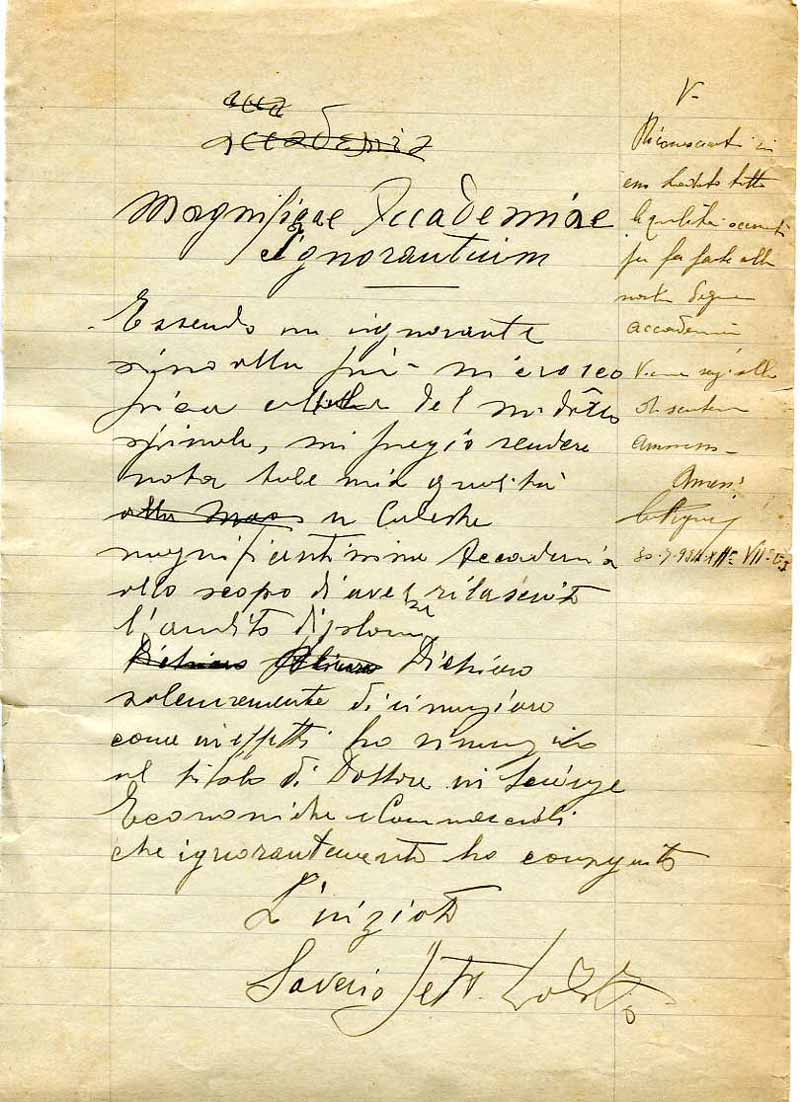 acca
accademia
Magnificae Accademiae
Ignorantium
Essendo un ignorante
sino alla più microsco
pica cellula del midollo
spinale, mi pregio rendere
nota tale mia qualità
alla Mag a Codesta
magnificentissima Accademia
allo scopo di aver rilasciato
l'ambito diploma
Dichiaro Dichiaro
solennemente di rinunziare
come in effetti ho rinunziato
al titolo di Dottore in Scienze
Economiche e Commerciali
che ignorantemente ho conquistato
L'iniziato
Saverio
V-
Riconosciuti in
esso tutte
le qualità occorrenti
per far parte alla
nostra degna
accademia
Viene
ammesso-
Amen!